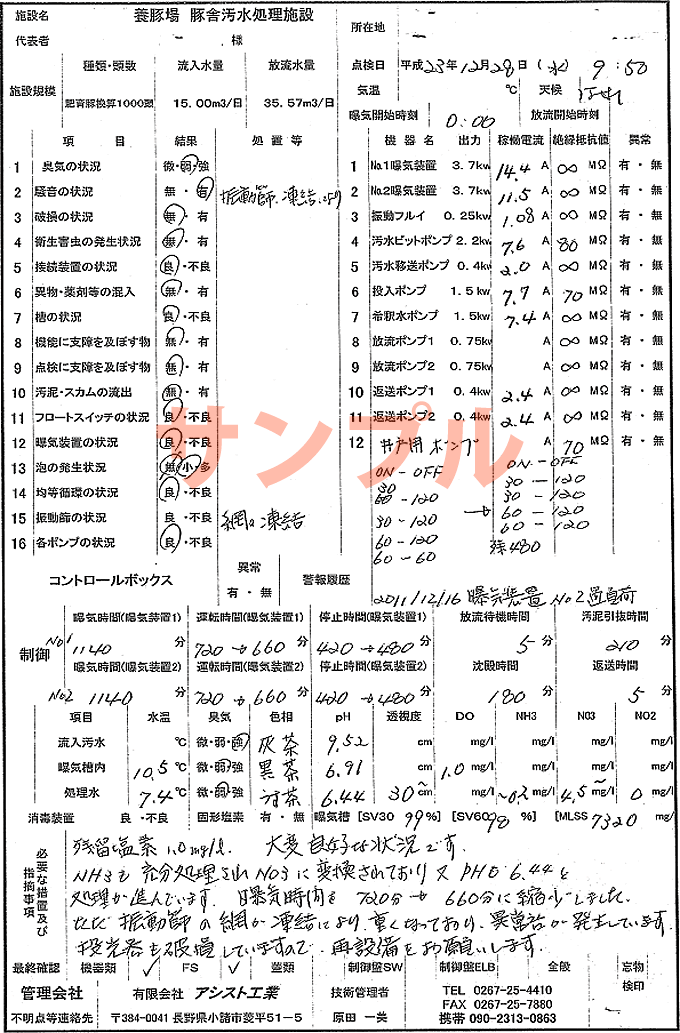 施設名 養豚場 豚舎汚水処理施設 所在地
代表者 様 点検日 平成23年12月28日(水) 9:50
種類・頭数 流入水量 放流水量 気温 ℃ 天候 はれ
施設規模 肥育豚換算1000頭 15.00m3/日 35.57m3/日 曝気開始時刻 0:00 放流開始時刻
項目 結果 処置等 機器名 出力 稼働電流 絶縁抵抗値 異常
1 臭気の状況 微・弱・強 1 No.1曝気装置 3.7kw 14.4 A ∞ MΩ 有・無
2 騒音の状況 無・有 振動篩、凍結 より 2 No.2曝気装置 3.7kw 11.5 A ∞ MΩ 有・無
3 破損の状況 無・有 3 振動フルイ 0.25kw 1.08 A ∞ MΩ 有・無
4 衛生害虫の発生状況 無・有 4 汚水ピットポンプ 2.2kw 7.6 A 80 MΩ 有・無
5 接続装置の状況 良・不良 5 汚水移送ポンプ 0.4kw 2.0 A ∞ MΩ 有・無
6 異物・薬剤等の混入 無・有 6 投入ポンプ 1.5kw 7.7 A 70 MΩ 有・無
7 槽の状況 良・不良 7 希釈水ポンプ 1.5kw 7.4 A ∞ MΩ 有・無
8 機能に支障を及ぼす物 無・有 8 放流ポンプ1 0.75kw A ∞ MΩ 有・無
9 点検に支障を及ぼす物 無・有 9 放流ポンプ2 0.75kw A ∞ MΩ 有・無
10 汚泥・スカムの流出 無・有 10 返送ポンプ1 0.4kw 2.4 A ∞ MΩ 有・無
11 フロートスイッチの状況 良・不良 11 返送ポンプ2 0.4kw 2.4 A ∞ MΩ 有・無
サンプル
12 曝気装置の状況 良・不良 12 井戸用ポンプ A 70 MΩ 有・無
13 泡の発生状況 無・小・多 ON-OFF ON-OFF
14 均等循環の状況 良・不良 60-120 30-120
15 振動篩の状況 良・不良 網に凍結 30-120 → 60-120
60-120 60-120
16 各ポンプの状況 良・不良 60-60 残480
コントロールボックス 異常 有・無 警報履歴 2011/12/16 曝気装置 No2過負荷
曝気時間(曝気装置1) 運転時間(曝気装置1) 停止時間(曝気装置1) 放流待機時間 汚泥引抜時間
制御 No1 1140 分 720→660分 420→480分 5分 210分
曝気時間(曝気装置2) 運転時間(曝気装置2) 停止時間(曝気装置2) 沈殿時間 返送時間
No2 1140 分 720→660分 420→480分 180分 5分
項目 水温 臭気 色相 pH 透視度 DO NH3 NO3 NO2
流入汚水 ℃ 微・弱・強 灰茶 9.52 cm mg/l mg/l mg/l mg/l
曝気槽内 10.5℃ 微・弱・強 黒茶 6.91 cm 1.0 mg/l mg/l mg/l mg/l
処理水 7.4℃ 微・弱・強 茶 6.44 30~cm mg/l ~0.2 mg/l 4.5~mg/l 0 mg/l
消毒装置 良・不良 固形塩素 有・無 曝気槽 [SV30 99%] [SV60 98%] [MLSS 7320 mg/l
必要な措置及び指摘事項
残留塩素 1.0mg/l. 大変良好な状況です。
NH3も充分処理されNO3に変換されており又PHも6.44と
処理が進んでいます。曝気時間を720分→660分に縮少しました。
ただ振動篩の網が凍結により、重くなっており、異常音が発生しています。
投光器も破損していますので、再設備をお願いします。
最終確認 機器類 ✓ FS ✓ 蓋類 制御盤SW 制御盤ELB 全般 忘物
管理会社 有限会社 アシスト工業 技術管理者 TEL 0267-25-4410 検印
FAX 0267-25-7880
不明点等連絡先 〒384-0041 長野県小諸市菱平51-5 原田 一美 携帯 090-2313-0863